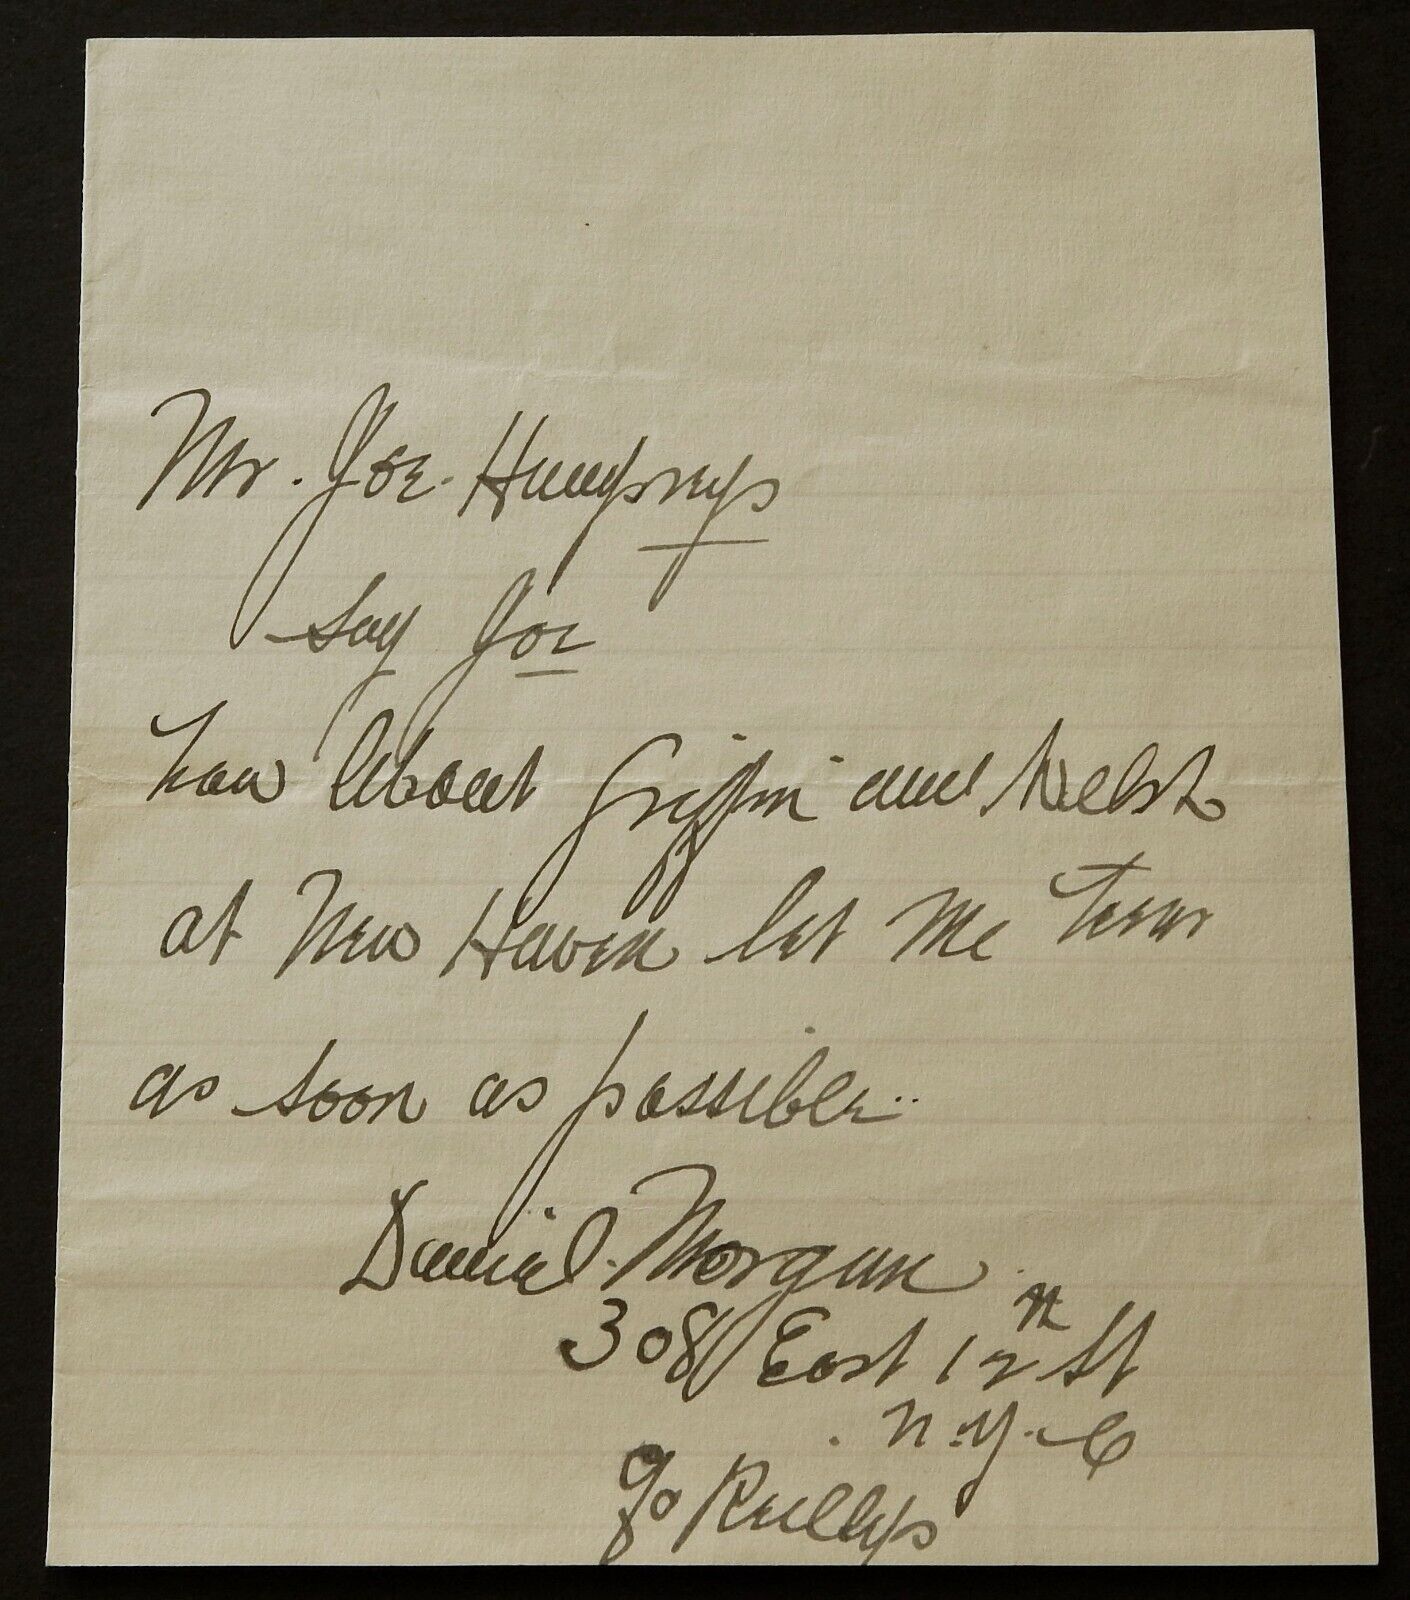 Mr. Joe. Humphreys
Say Joe
how about Griffin and Welsh
at New Haven let me know
as soon as possible..
Daniel. Morgan
308 East 12th St
N.Y.C
c/o Reillys